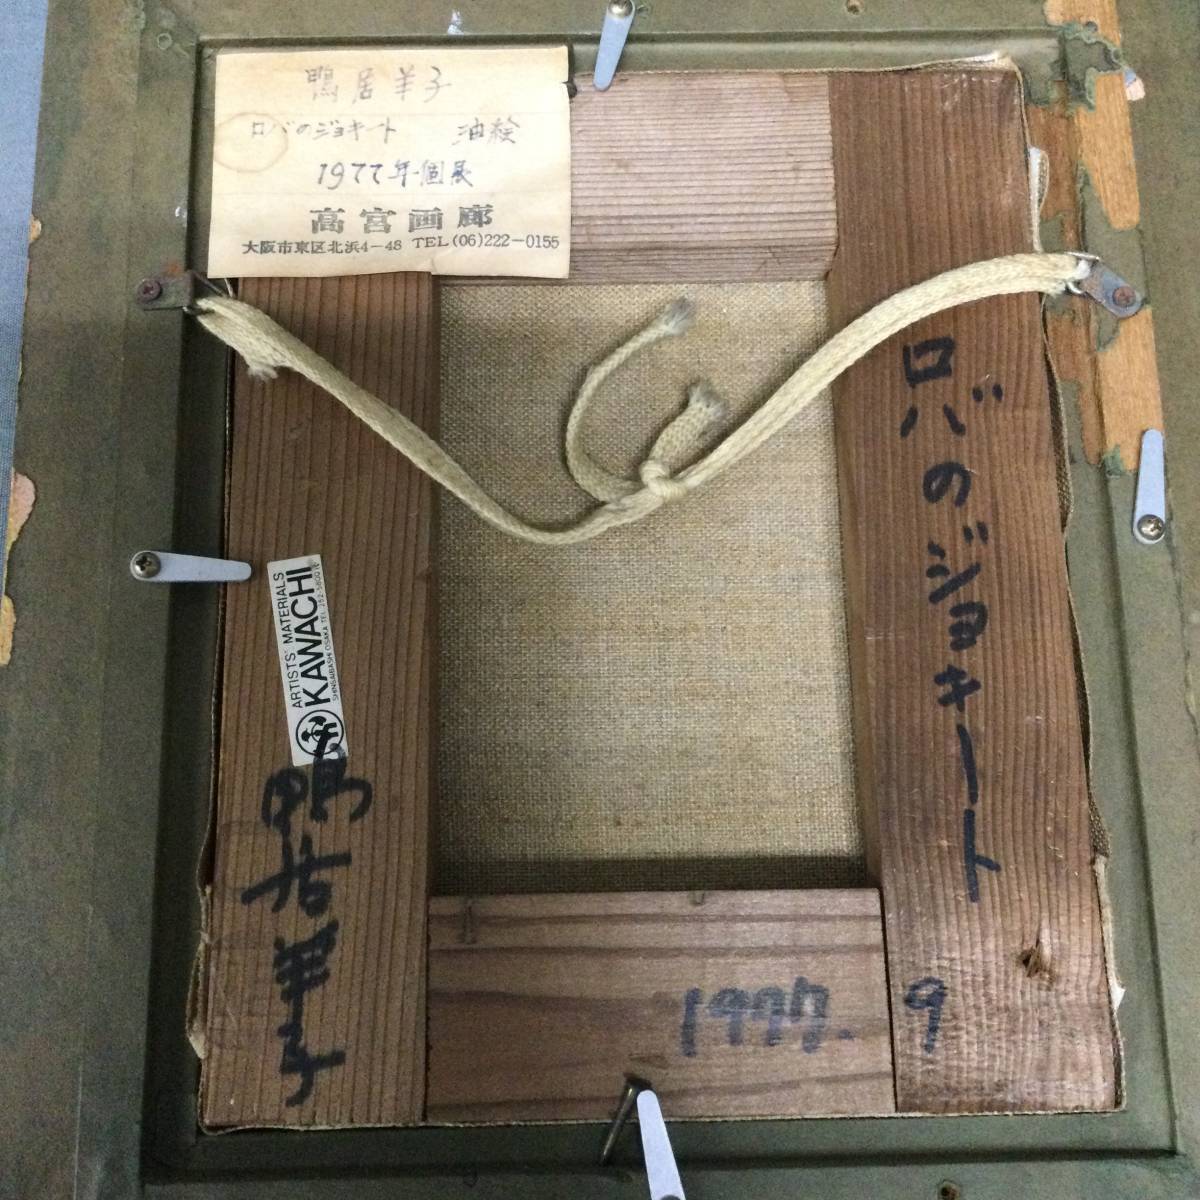 鴨居羊子
ロバのジョキート 油絵
1977年個展
高宮画廊
大阪市東区北浜4-48 TEL(06)222-0155
ロバのジョキート
ARTISTS' MATERIALS
KAWACHI
SHINSAIBASHI OSAKA TEL 252-5800
鴨居羊子
1977. 9